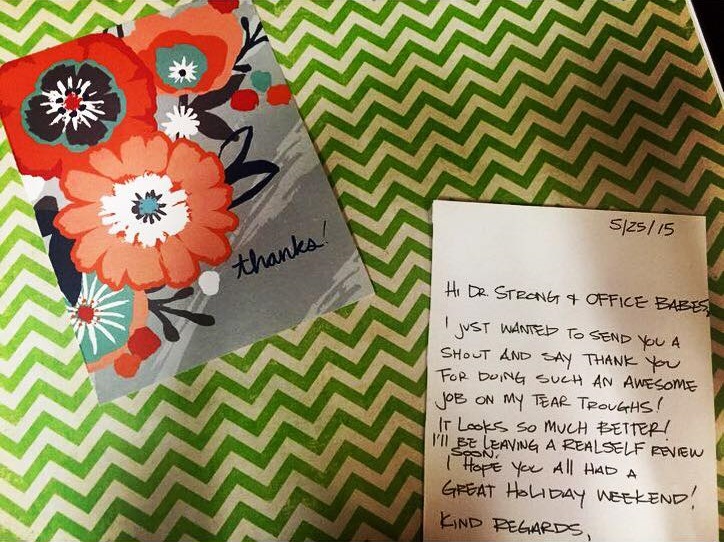 thanks!
5/25/15
Hi Dr. Strong & Office Babes,
I just wanted to send you a
shout and say thank you
for doing such an awesome
job on my tear troughs!
It looks so much better!
I'll be leaving a Realself review
soon.
I hope you all had a
great holiday weekend!
Kind regards,